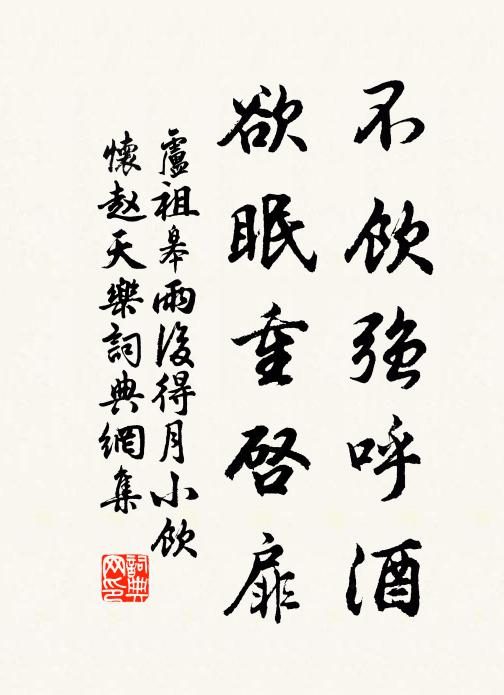 不飲強呼酒
欲眠重啓扉
盧祖皋雨後得月小飲
懷赵天樂詞典網集
詞典网印